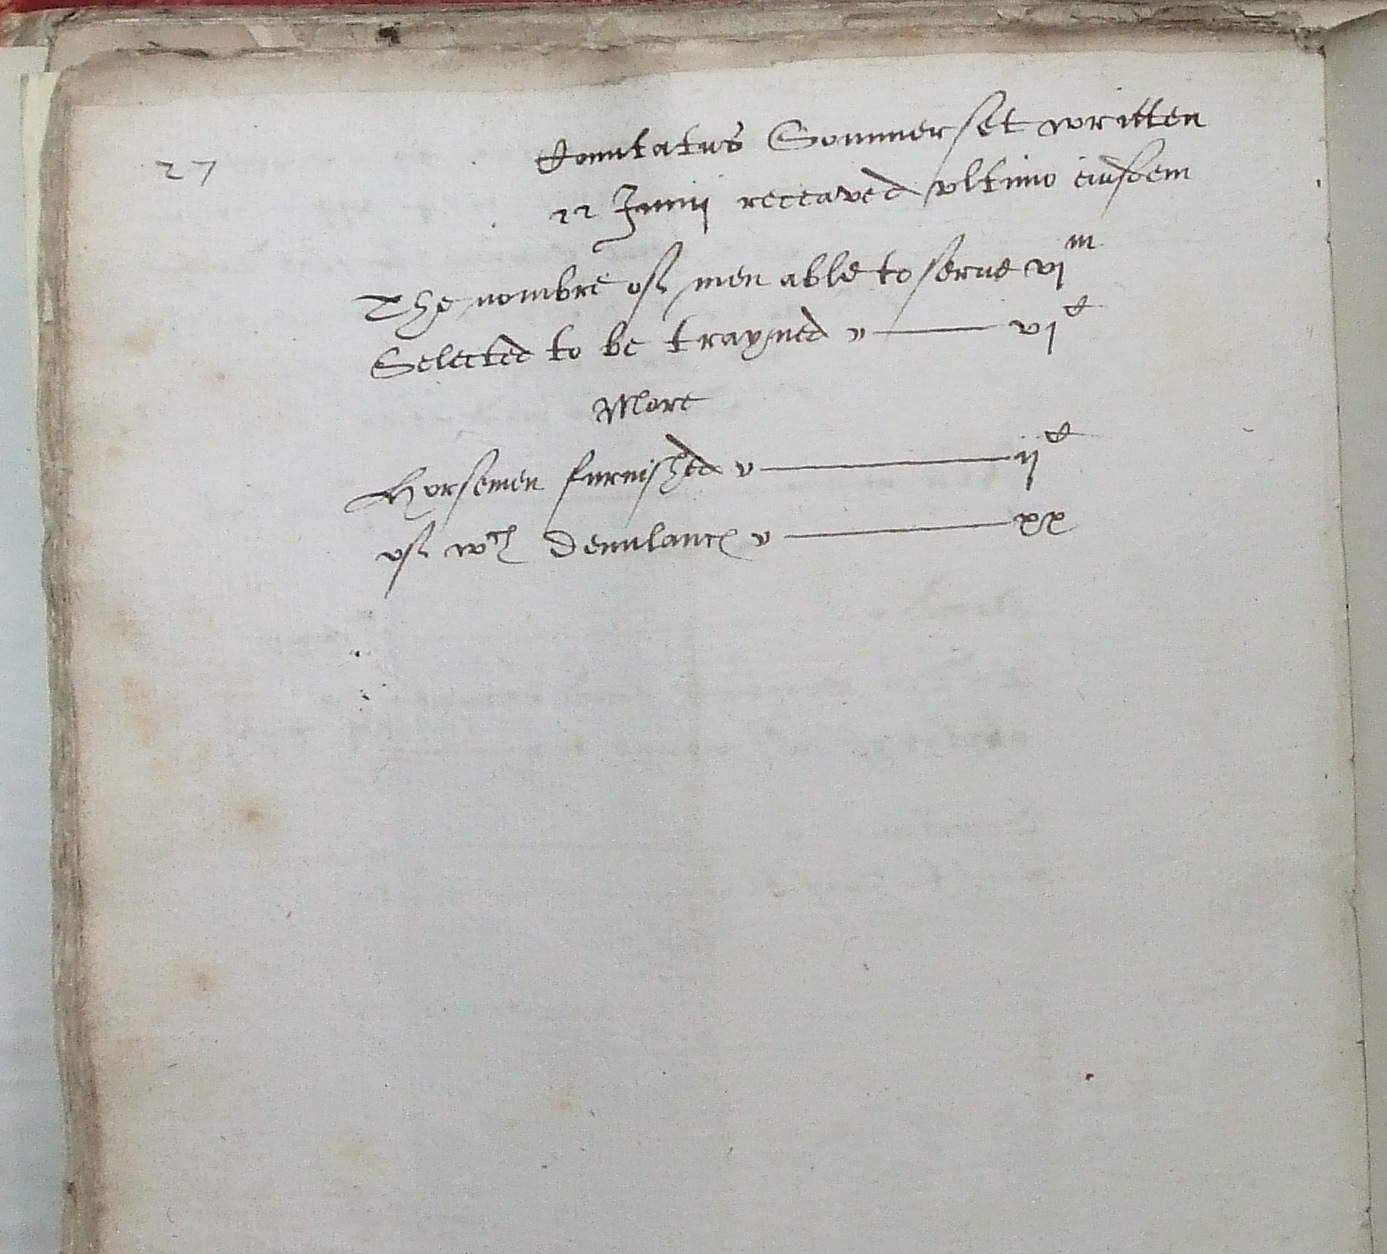 27
Comitatus Sommerset written
22 Junij receaved vltimo eiusdem
The nombre of men able to serue vi^m
Selected to be trayned v — vi^C
More
Horsemen furnished v — ij^C
of w^th Demilances v — xx